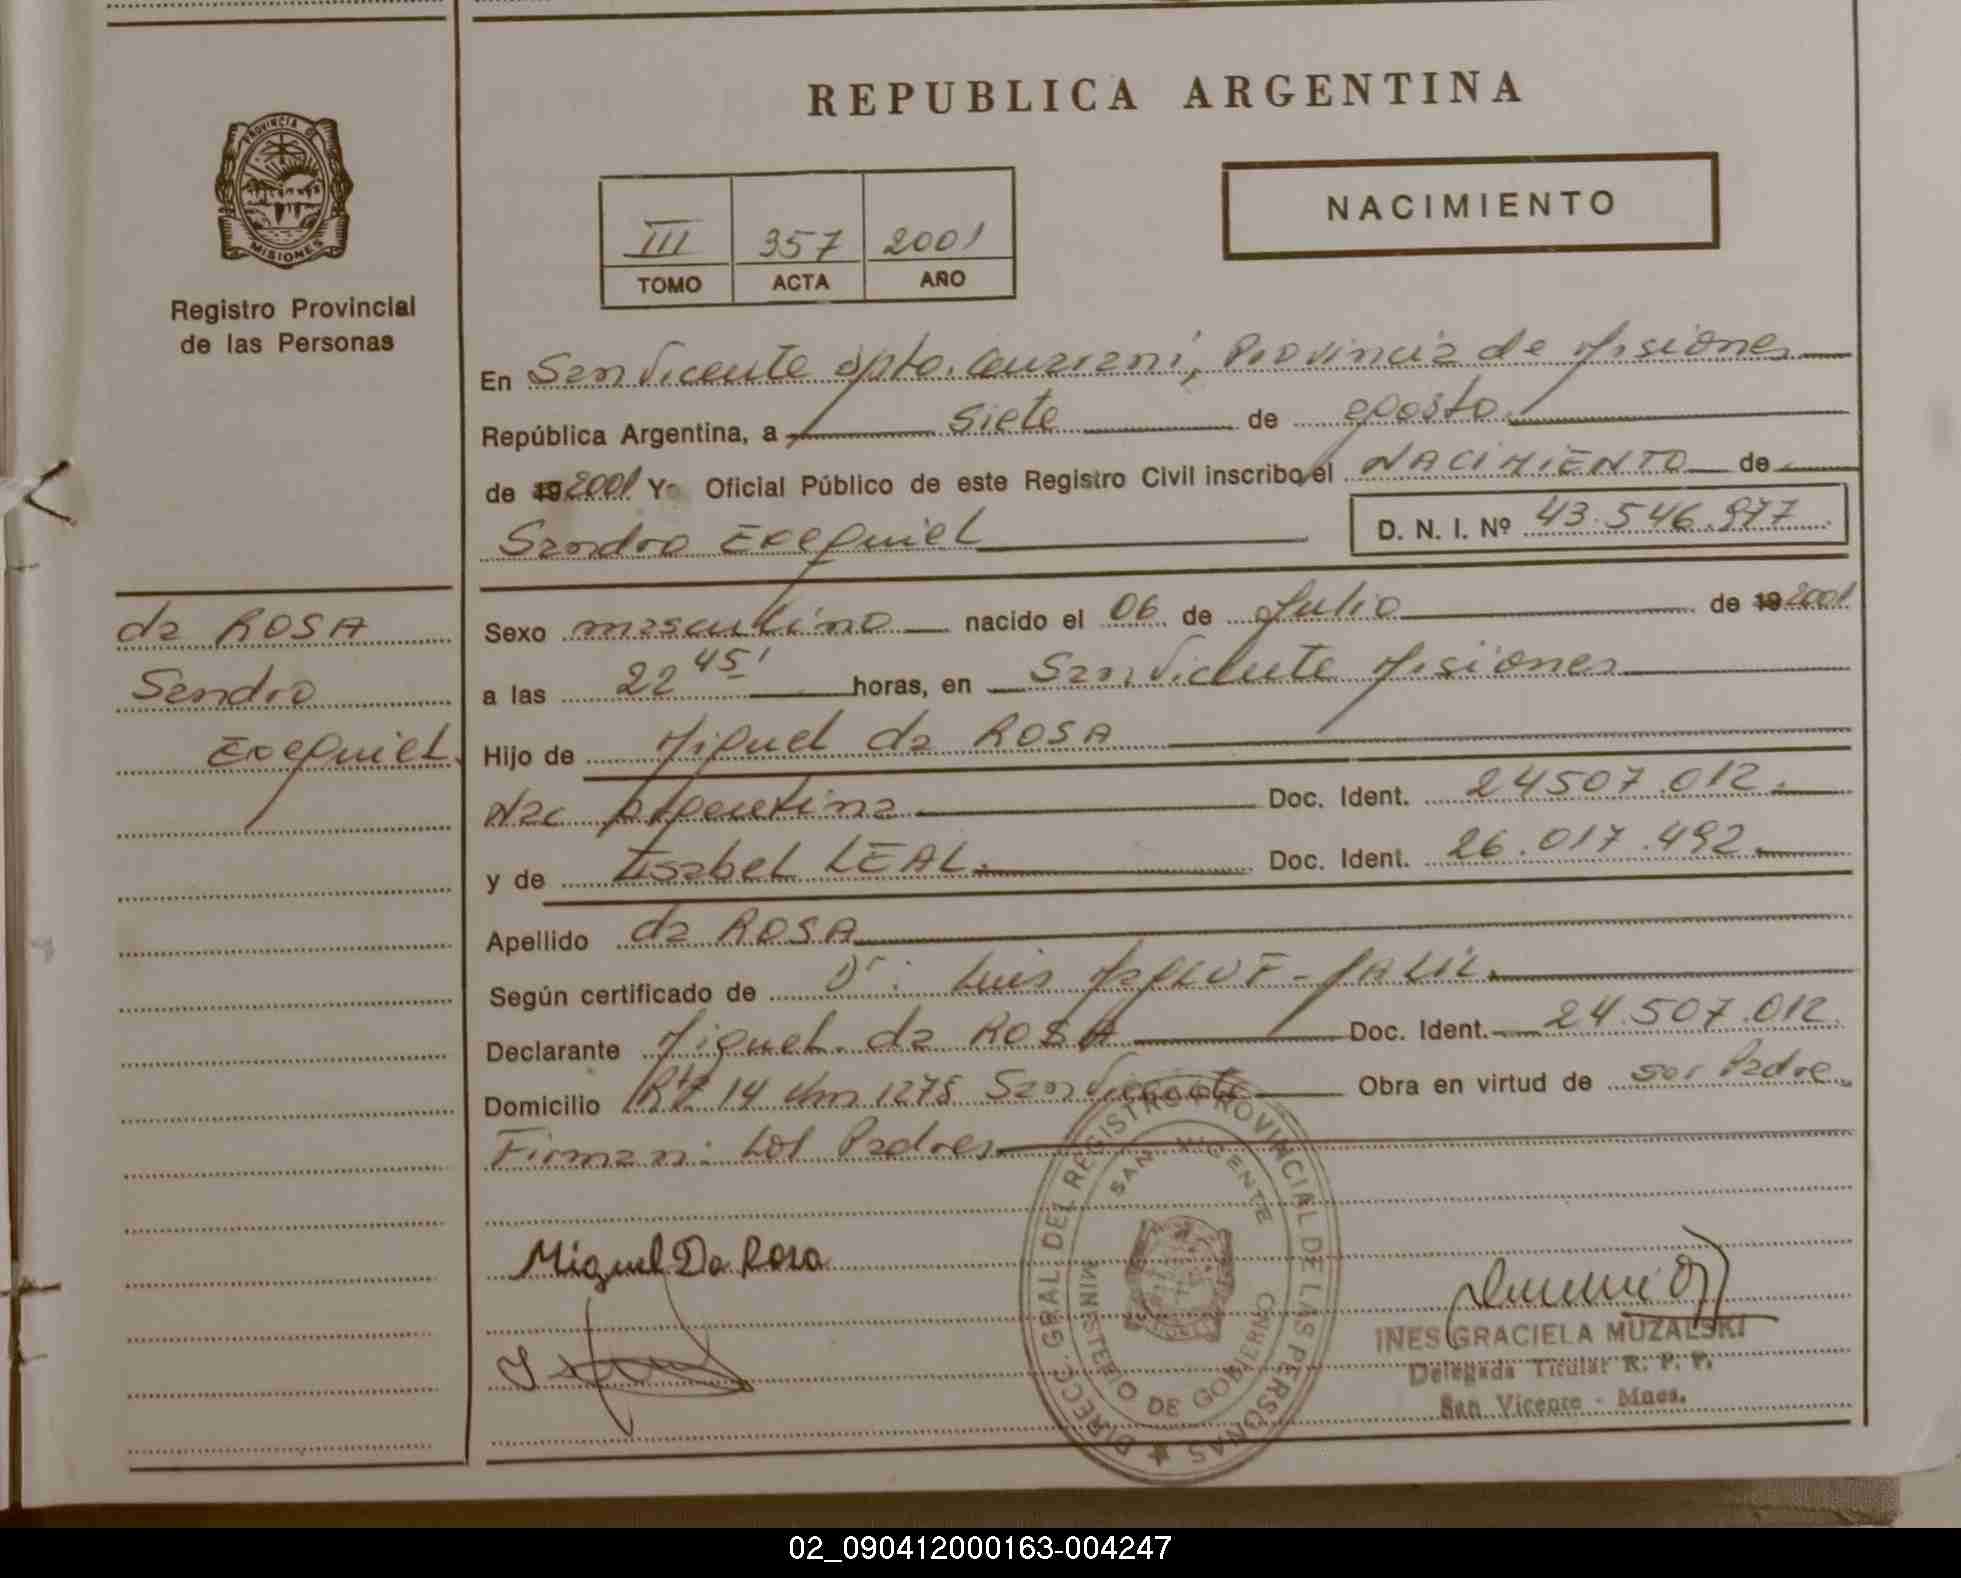 REPUBLICA ARGENTINA
PROVINCIA DE MISIONES
Registro Provincial
de las Personas
III 357 2001
TOMO ACTA AÑO
NACIMIENTO
En San Vicente dpto. Cainguás, Provincia de Misiones
República Argentina, a siete de agosto
de 19 2001 Yo Oficial Público de este Registro Civil inscribo el NACIMIENTO de
Sandro Exequiel
D. N. I. Nº 43.546.977
da ROSA
Sandro
Exequiel
Sexo masculino nacido el 06 de Julio de 19 2001
a las 22 45' horas, en San Vicente Misiones
Hijo de Miguel da ROSA
Nac Argentina Doc. Ident. 24507.012.
y de Isabel LEAL. Doc. Ident. 26.017.492.
Apellido da ROSA
Según certificado de Dr: Luis
Declarante Miguel da ROSA Doc. Ident. 24.507.012.
Domicilio Rta 14 Km 1275 San Vicente Obra en virtud de ser Padre
Firman: Los Padres
Miguel Da Rosa
DIRECC. GRAL DEL REGISTRO PROVINCIAL DE LAS PERSONAS
SAN VICENTE
MINISTERIO DE GOBIERNO
INES GRACIELA MUZALSKI
Delegada Titular R. P. P.
San Vicente - Mnes.
02_090412000163-004247